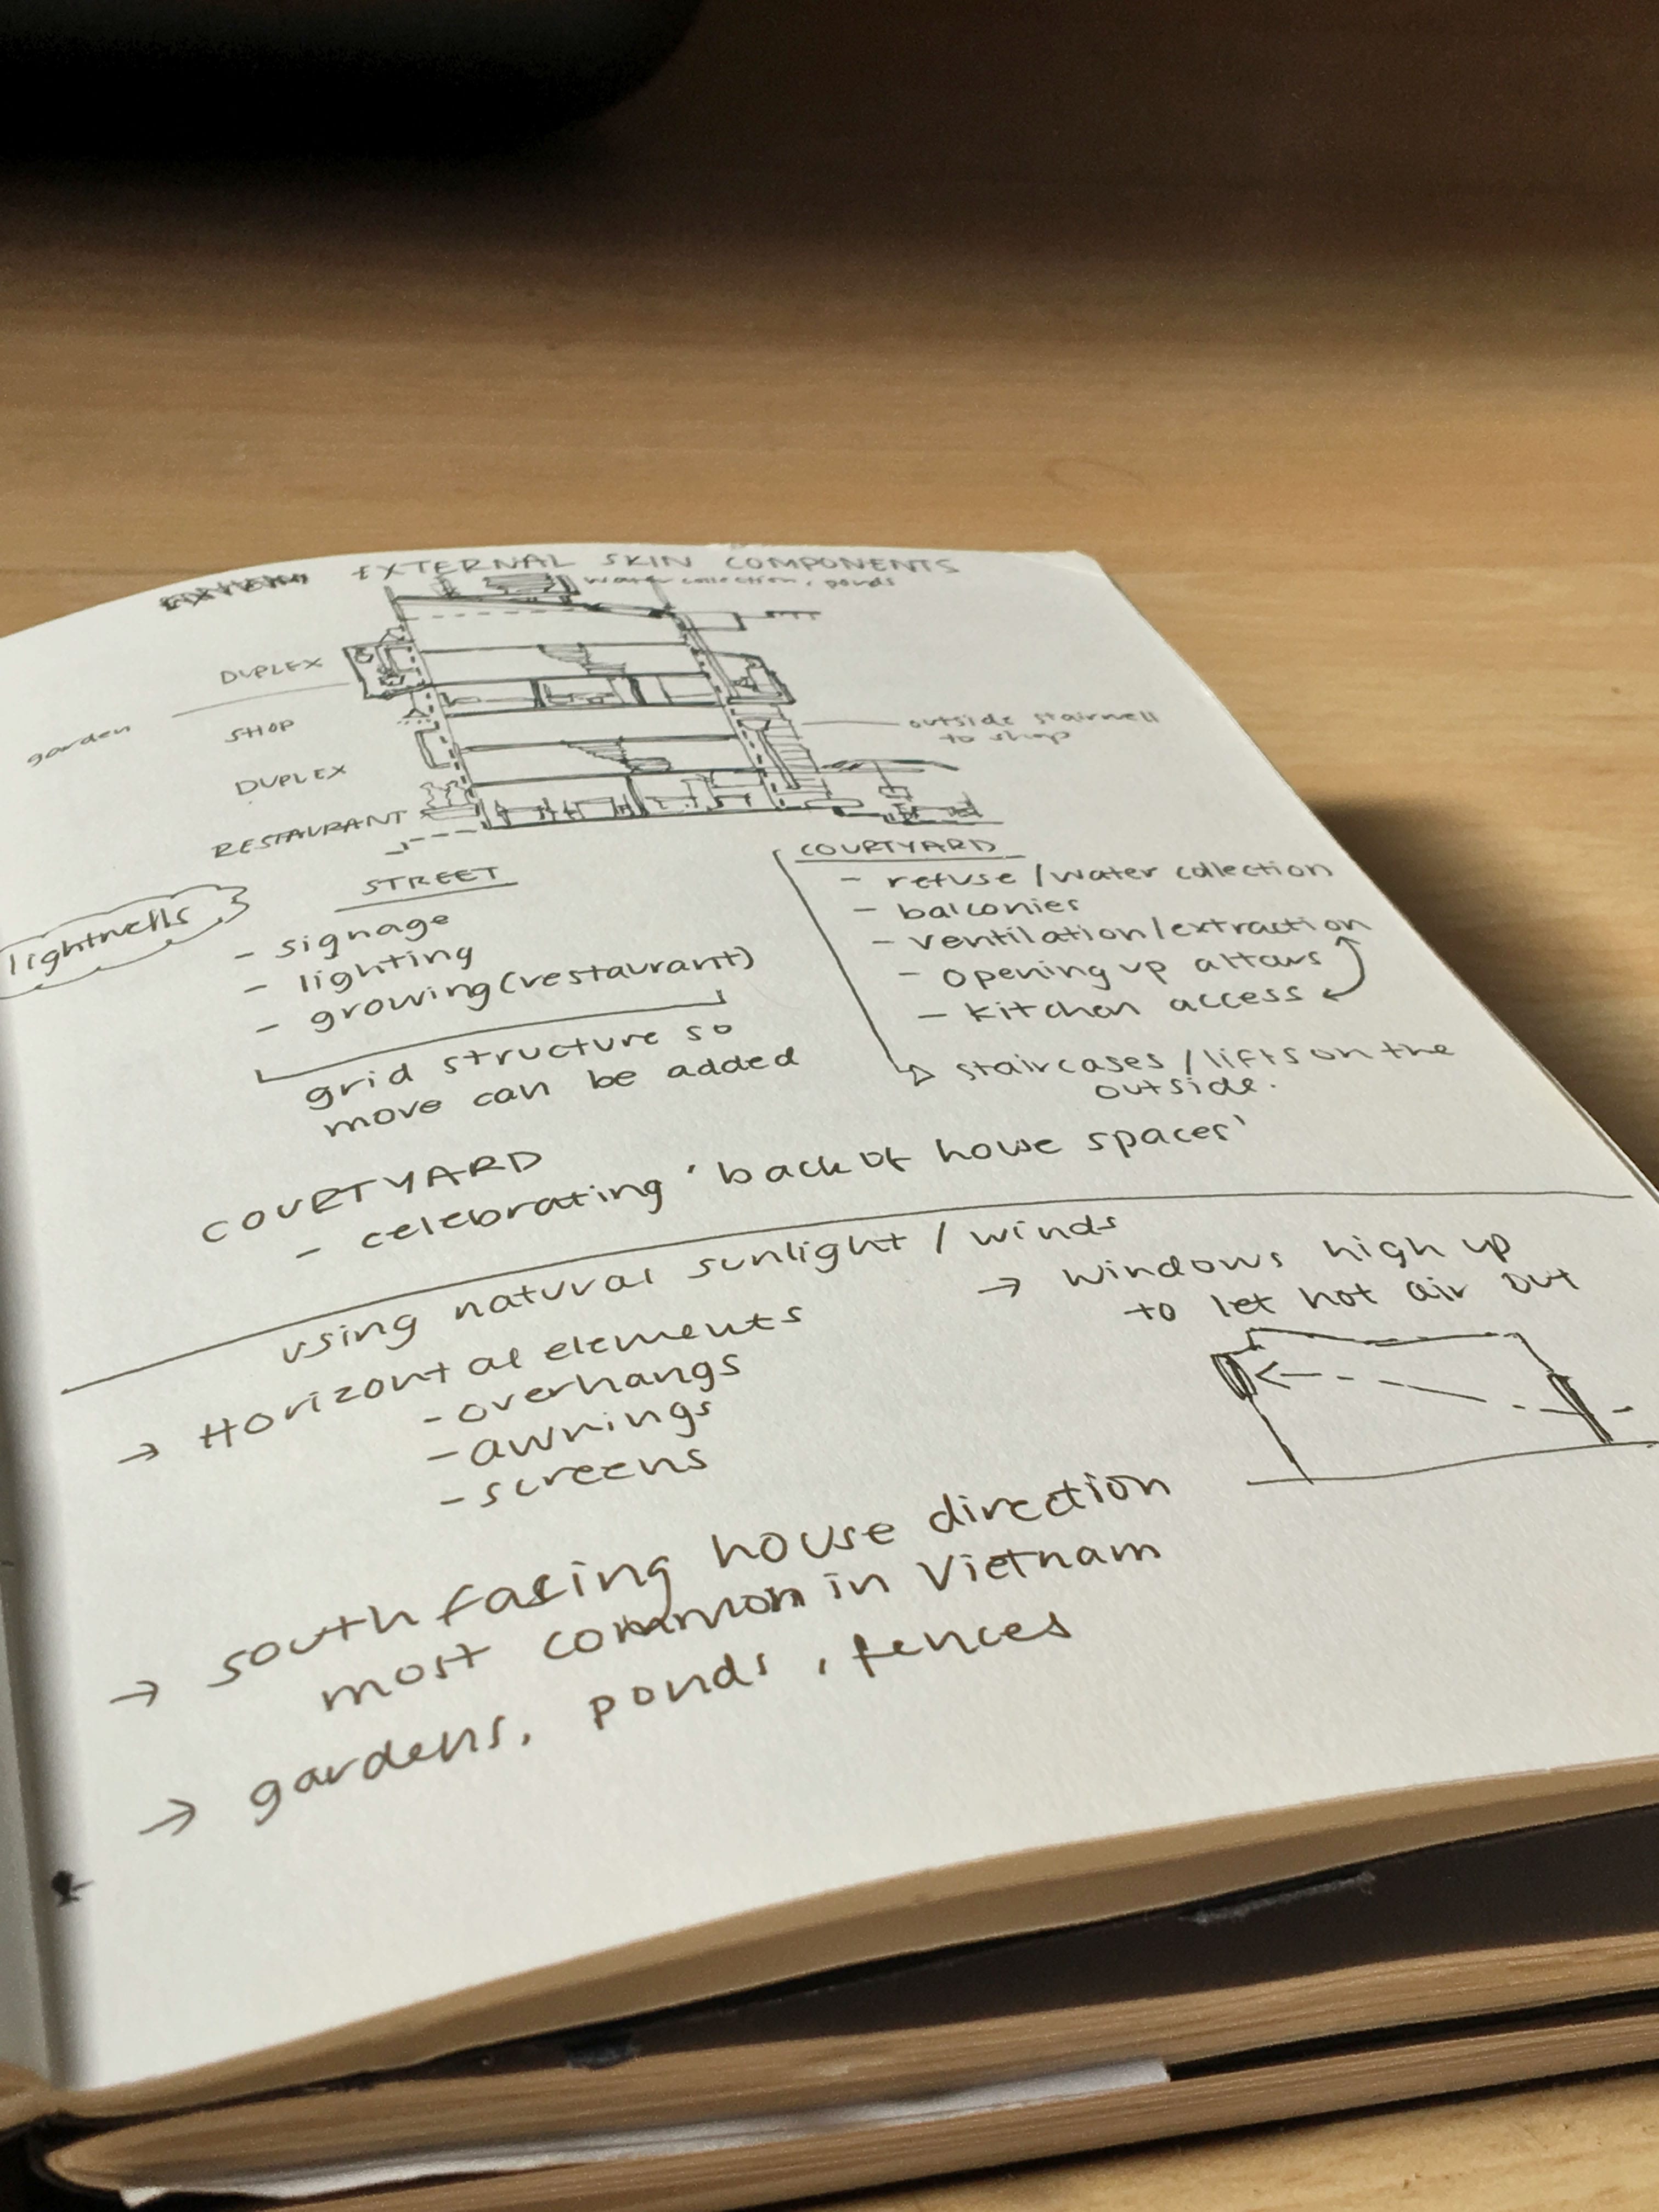 EXTERNAL SKIN COMPONENTS
water collection, ponds
DUPLEX
garden
SHOP
outside stairwell
to shop
DUPLEX
RESTAURANT
STREET
lightwells
- signage
- lighting
- growing (restaurant)
grid structure so
more can be added
COURTYARD
- refuse / water collection
- balconies
- ventilation/extraction
- opening up altars
- kitchen access
staircases / lifts on the
outside.
COURTYARD
- celebrating 'back of house spaces'
using natural sunlight / winds
→ Horizontal elements
- overhangs
- awnings
- screens
→ windows high up
to let hot air out
→ south facing house direction
most common in Vietnam
→ gardens, ponds, fences